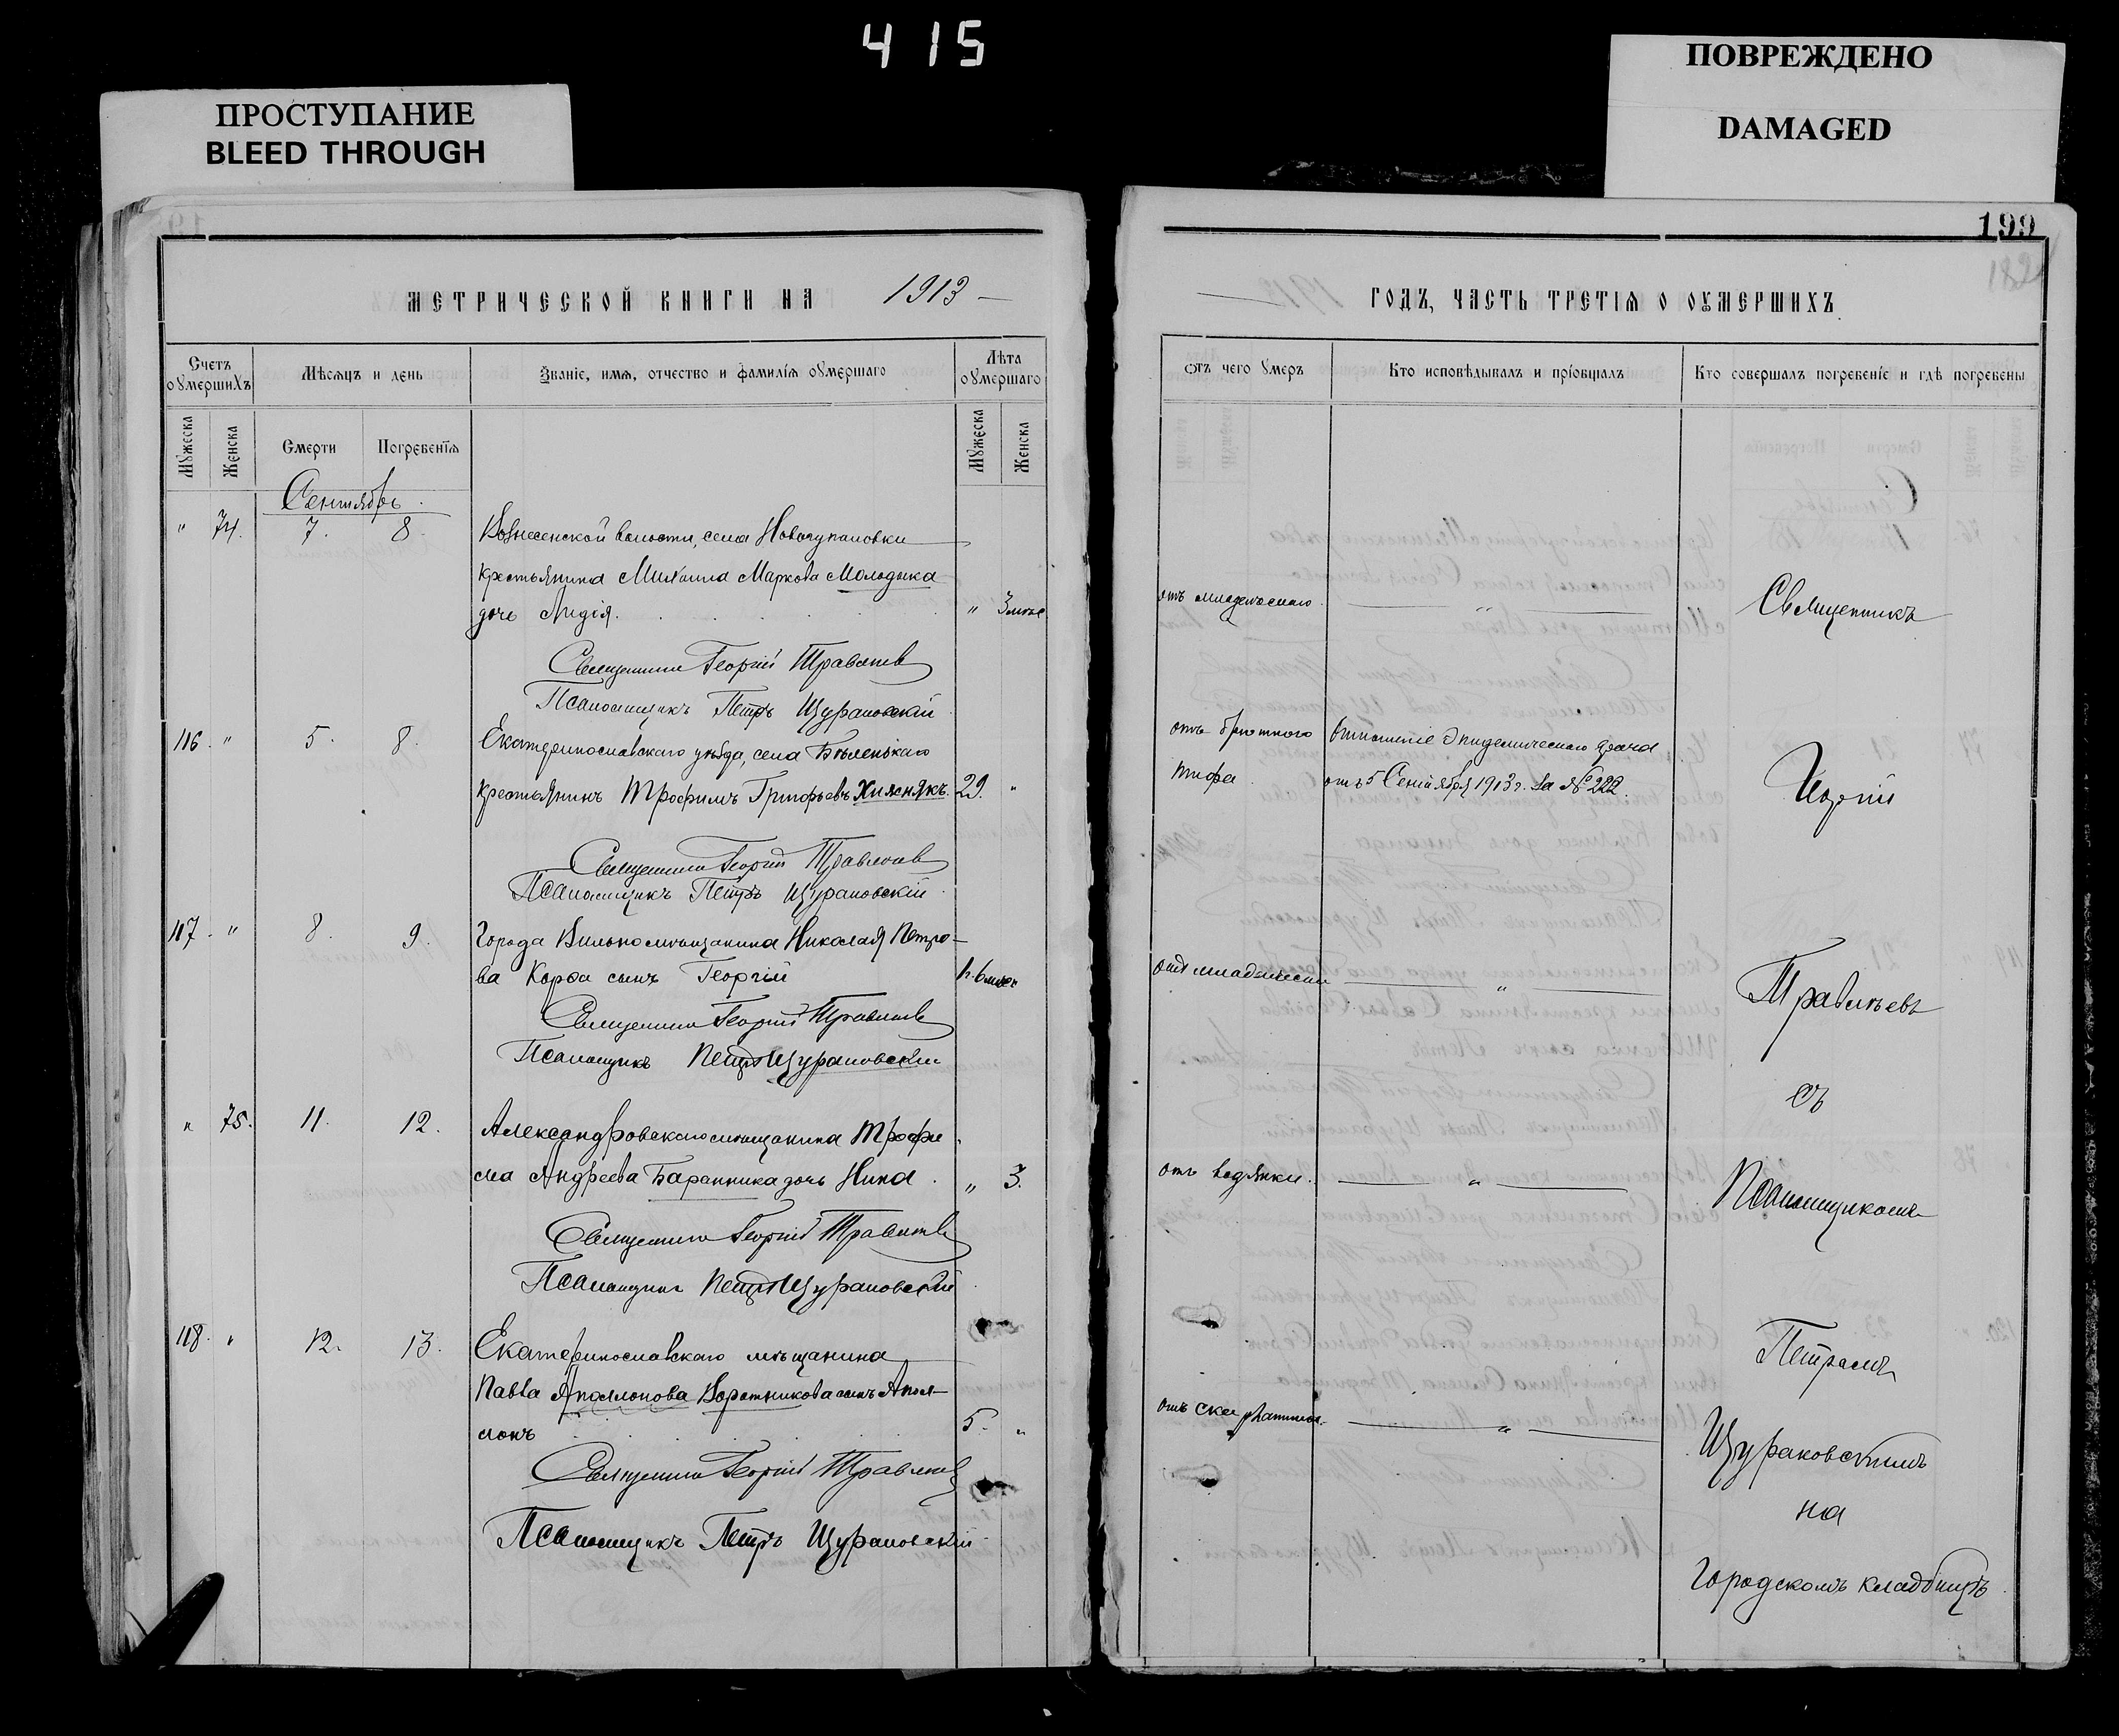 415
ПРОСТУПАНИЕ
BLEED THROUGH
ПОВРЕЖДЕНО
DAMAGED
199
МЕТРИЧЕСКОЙ КНИГИ НА 1913
Счетъ оумершихъ
Мѣсяцъ и день
Званіе, имя, отчество и фамилія оумершаго
Лѣта оумершаго
Мужеска
Женска
Смерти
Погребенія
Мужеска
Женска
Сентябрь.
" 74. 7. 8. Вознесенской волости, села Новогупаловки
крестьянина Михаила Маркова Молодыка
дочь Лидія. " 3 мѣс
Священникъ Георгій
Псаломщикъ Петръ Щураковскій
116. " 5. 8. Екатеринославскаго уѣзда, села Бѣленькаго
крестьянинъ Трофимъ Григорьевъ Хижнякъ. 29. "
Священникъ Георгій
Псаломщикъ Петръ Щураковскій
117. " 8. 9. Города Вильно мѣщанина Николая Петро-
ва Корфа сынъ Георгій 1 г. 6 мѣс.
Священникъ Георгій
Псаломщикъ Петръ Щураковскій
" 75. 11. 12. Александровскаго мѣщанина Трофи
ма Андреева Баранника дочь Нина. " 3.
Священникъ Георгій
Псаломщикъ Петръ Щураковскій
118. " 12. 13. Екатеринославскаго мѣщанина
Павла Аполлонова Воротникова сынъ Апол-
лонъ 5. "
Священникъ Георгій
Псаломщикъ Петръ Щураковскій
ГОДЪ, ЧАСТЬ ТРЕТІЯ О ОУМЕРШИХЪ
182
Отъ чего умеръ
Кто исповѣдывалъ и пріобщалъ
Кто совершалъ погребеніе и гдѣ погребены
отъ младенческаго. " Священникъ
отъ брюшного Отношеніе Эпидемическаго врача
тифа. отъ 5 Сентября 1913 г. за № 222. Георгій
отъ младенческ "
съ
отъ водянки. " Псаломщикомъ
Петромъ
отъ скарлатины. " Щураковскимъ
на
Городскомъ кладбищѣ.